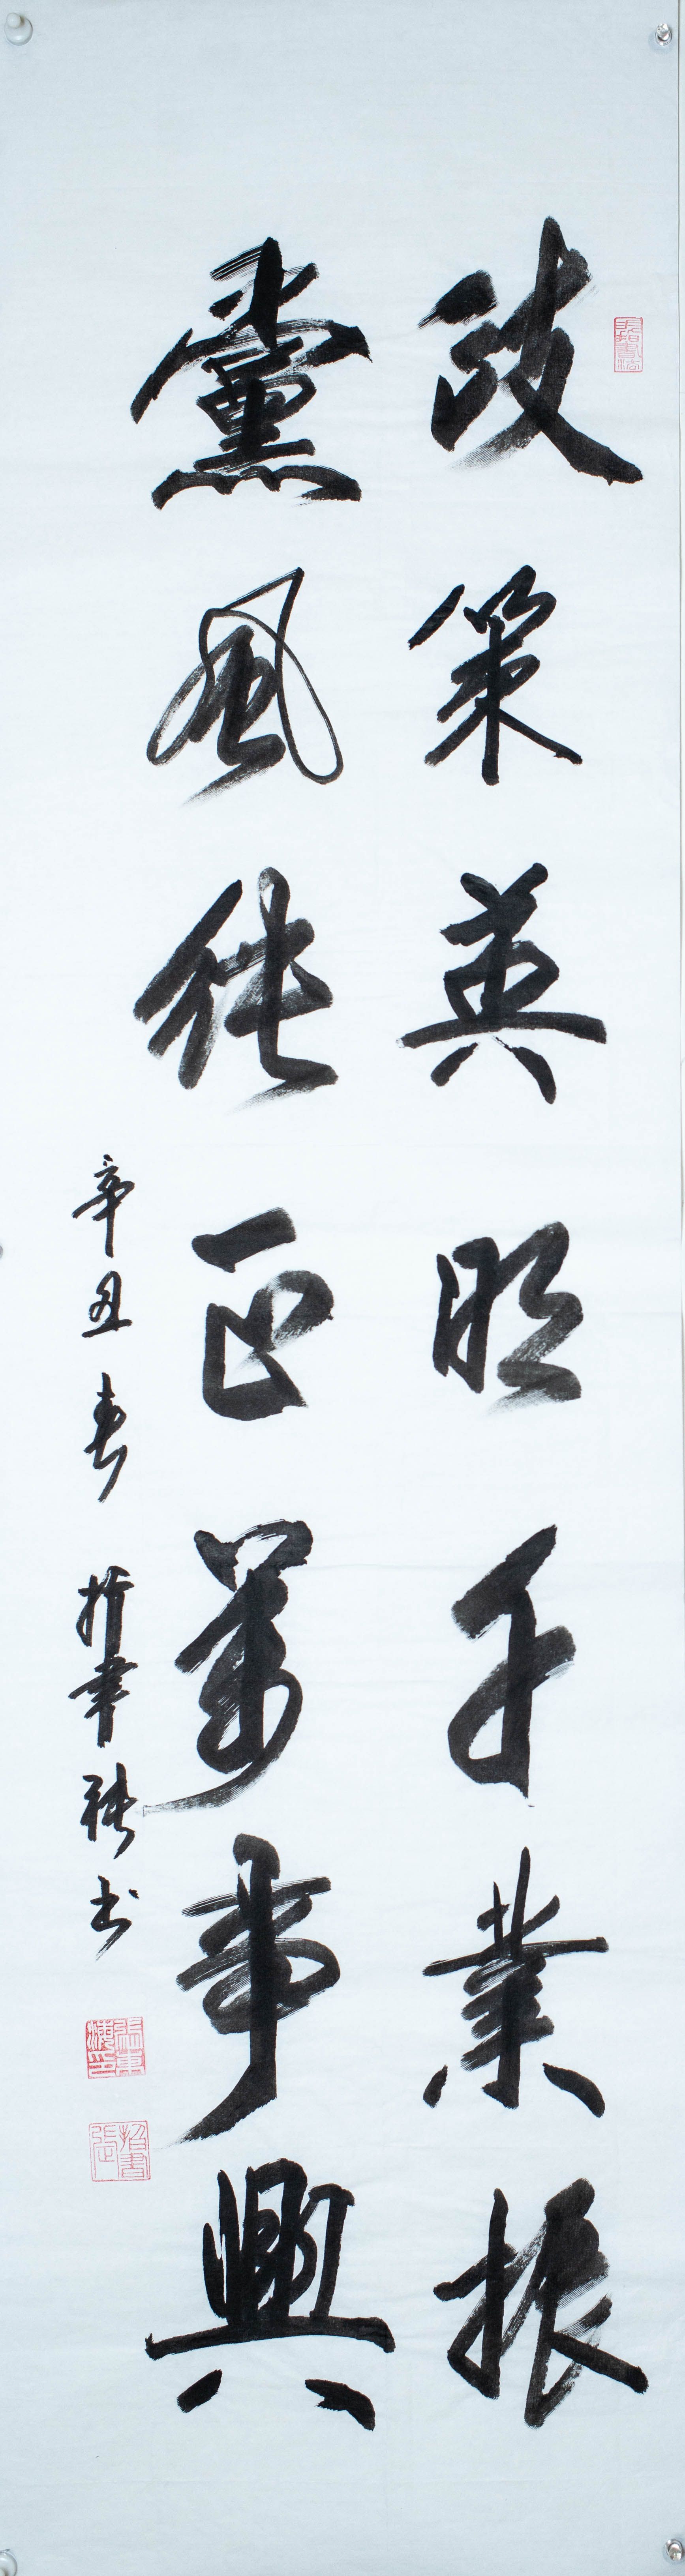 政策英明千業振
黨風純正萬事興
辛丑春 指書張書